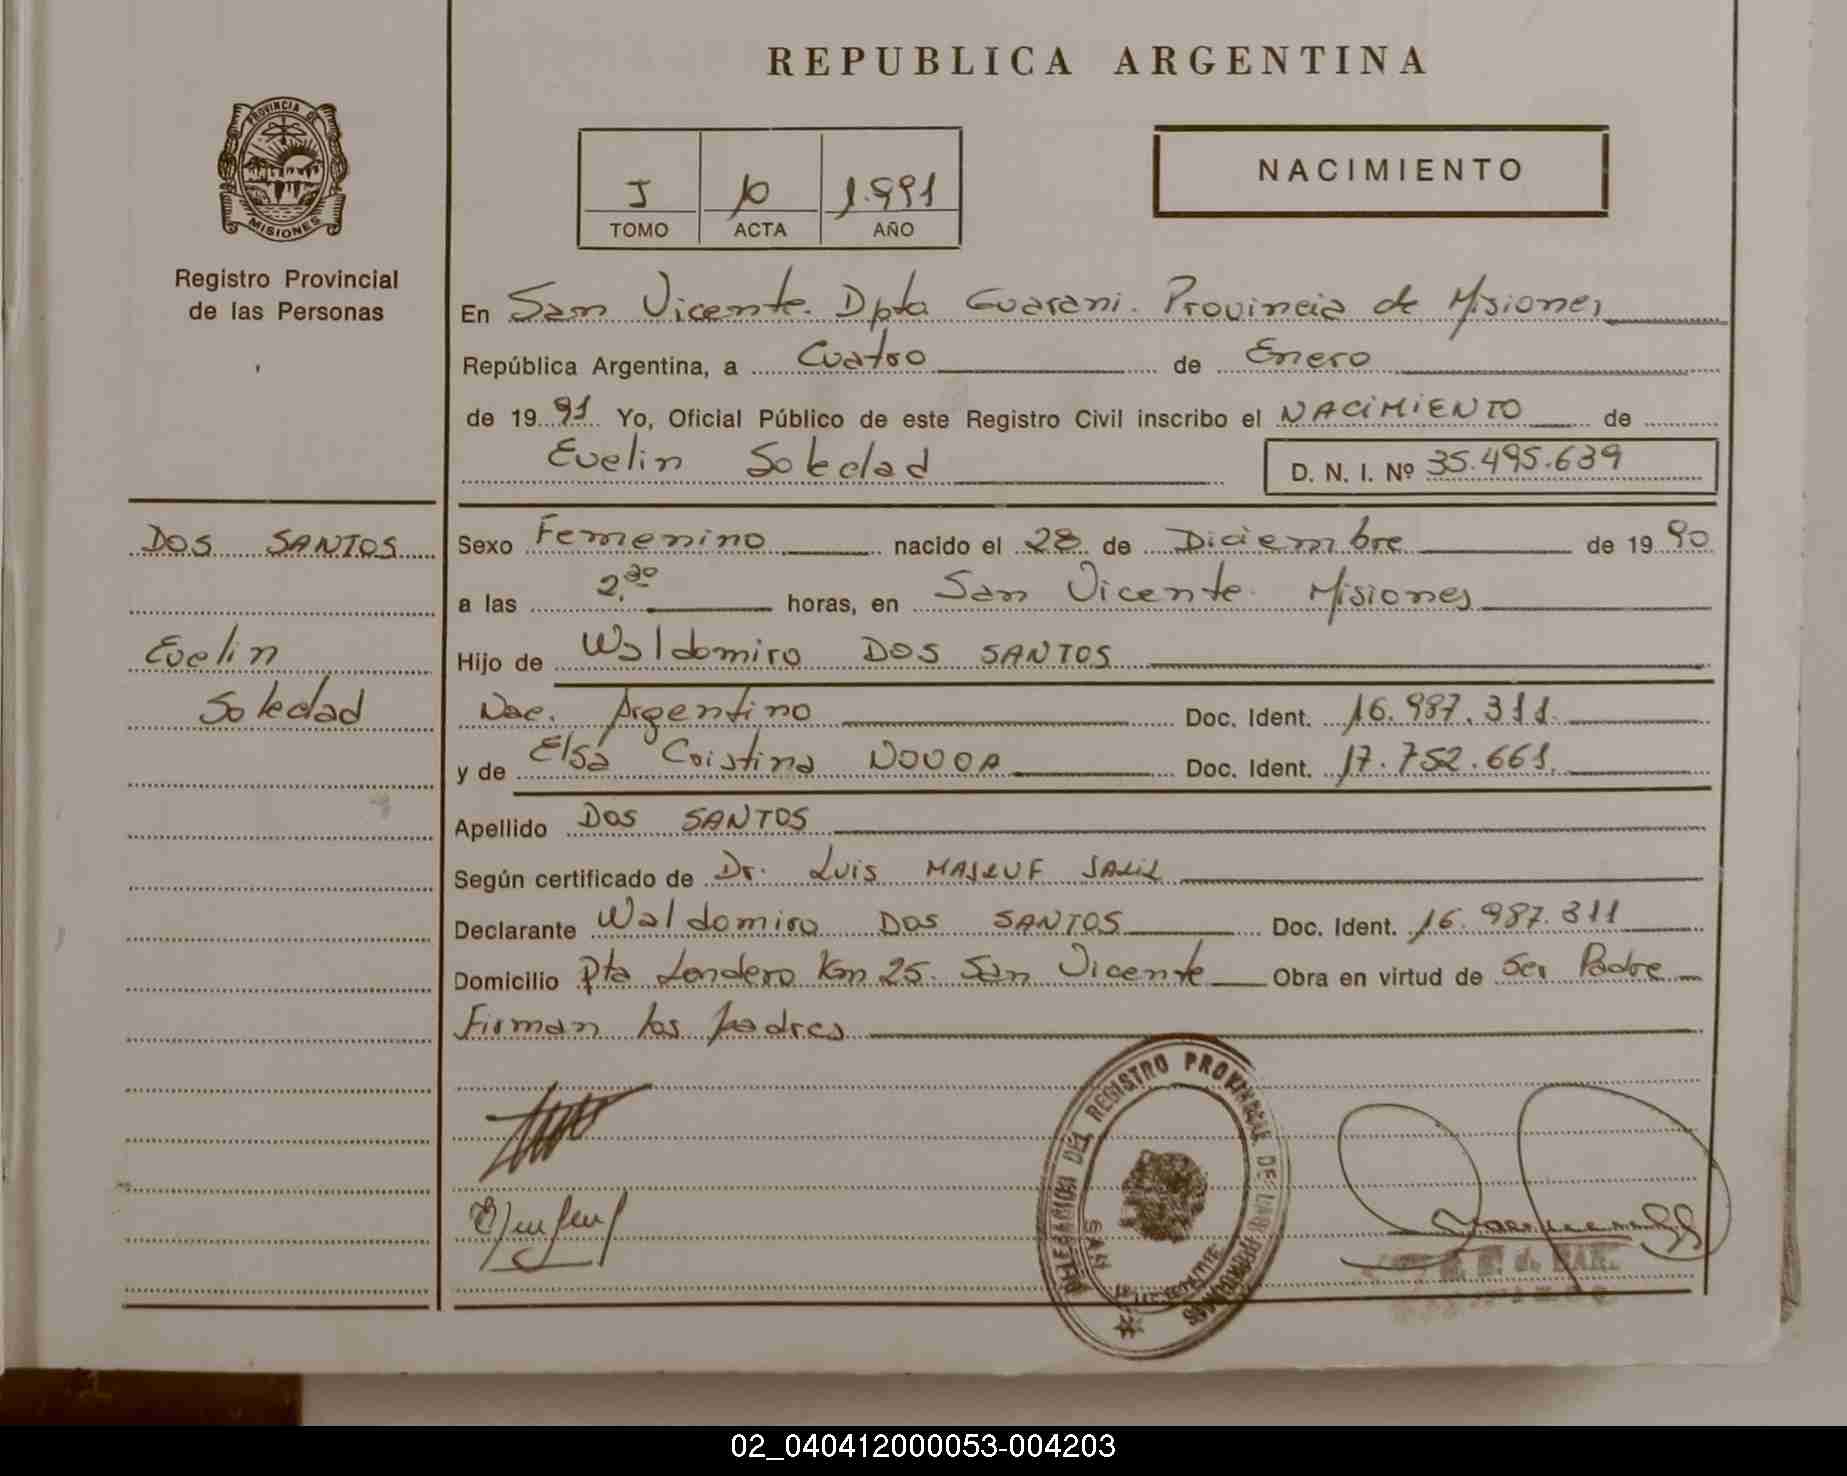 REPUBLICA ARGENTINA
PROVINCIA DE
MISIONES
Registro Provincial
de las Personas
I 10 1.991
TOMO ACTA AÑO
NACIMIENTO
En San Vicente. Dpto Guarani. Provincia de Misiones
República Argentina, a Cuatro de Enero
de 1991 Yo, Oficial Público de este Registro Civil inscribo el NACIMIENTO de
Evelin Soledad D. N. I. Nº 35.495.639
DOS SANTOS
Evelin
Soledad
Sexo Femenino nacido el 28 de Diciembre de 1990
a las 2,30 horas, en San Vicente. Misiones
Hijo de Waldomiro DOS SANTOS
Nac. Argentino Doc. Ident. 16.987.311.
y de Elsa Cristina NOVOA Doc. Ident. 17.752.661.
Apellido DOS SANTOS
Según certificado de Dr. Luis
Declarante Waldomiro DOS SANTOS Doc. Ident. 16.987.311
Domicilio Pta Londero Km 25. San Vicente Obra en virtud de Ser Padre
Firman los padres
DELEGACION DEL REGISTRO PROVINCIAL DE LAS PERSONAS
SAN VICENTE
02_040412000053-004203